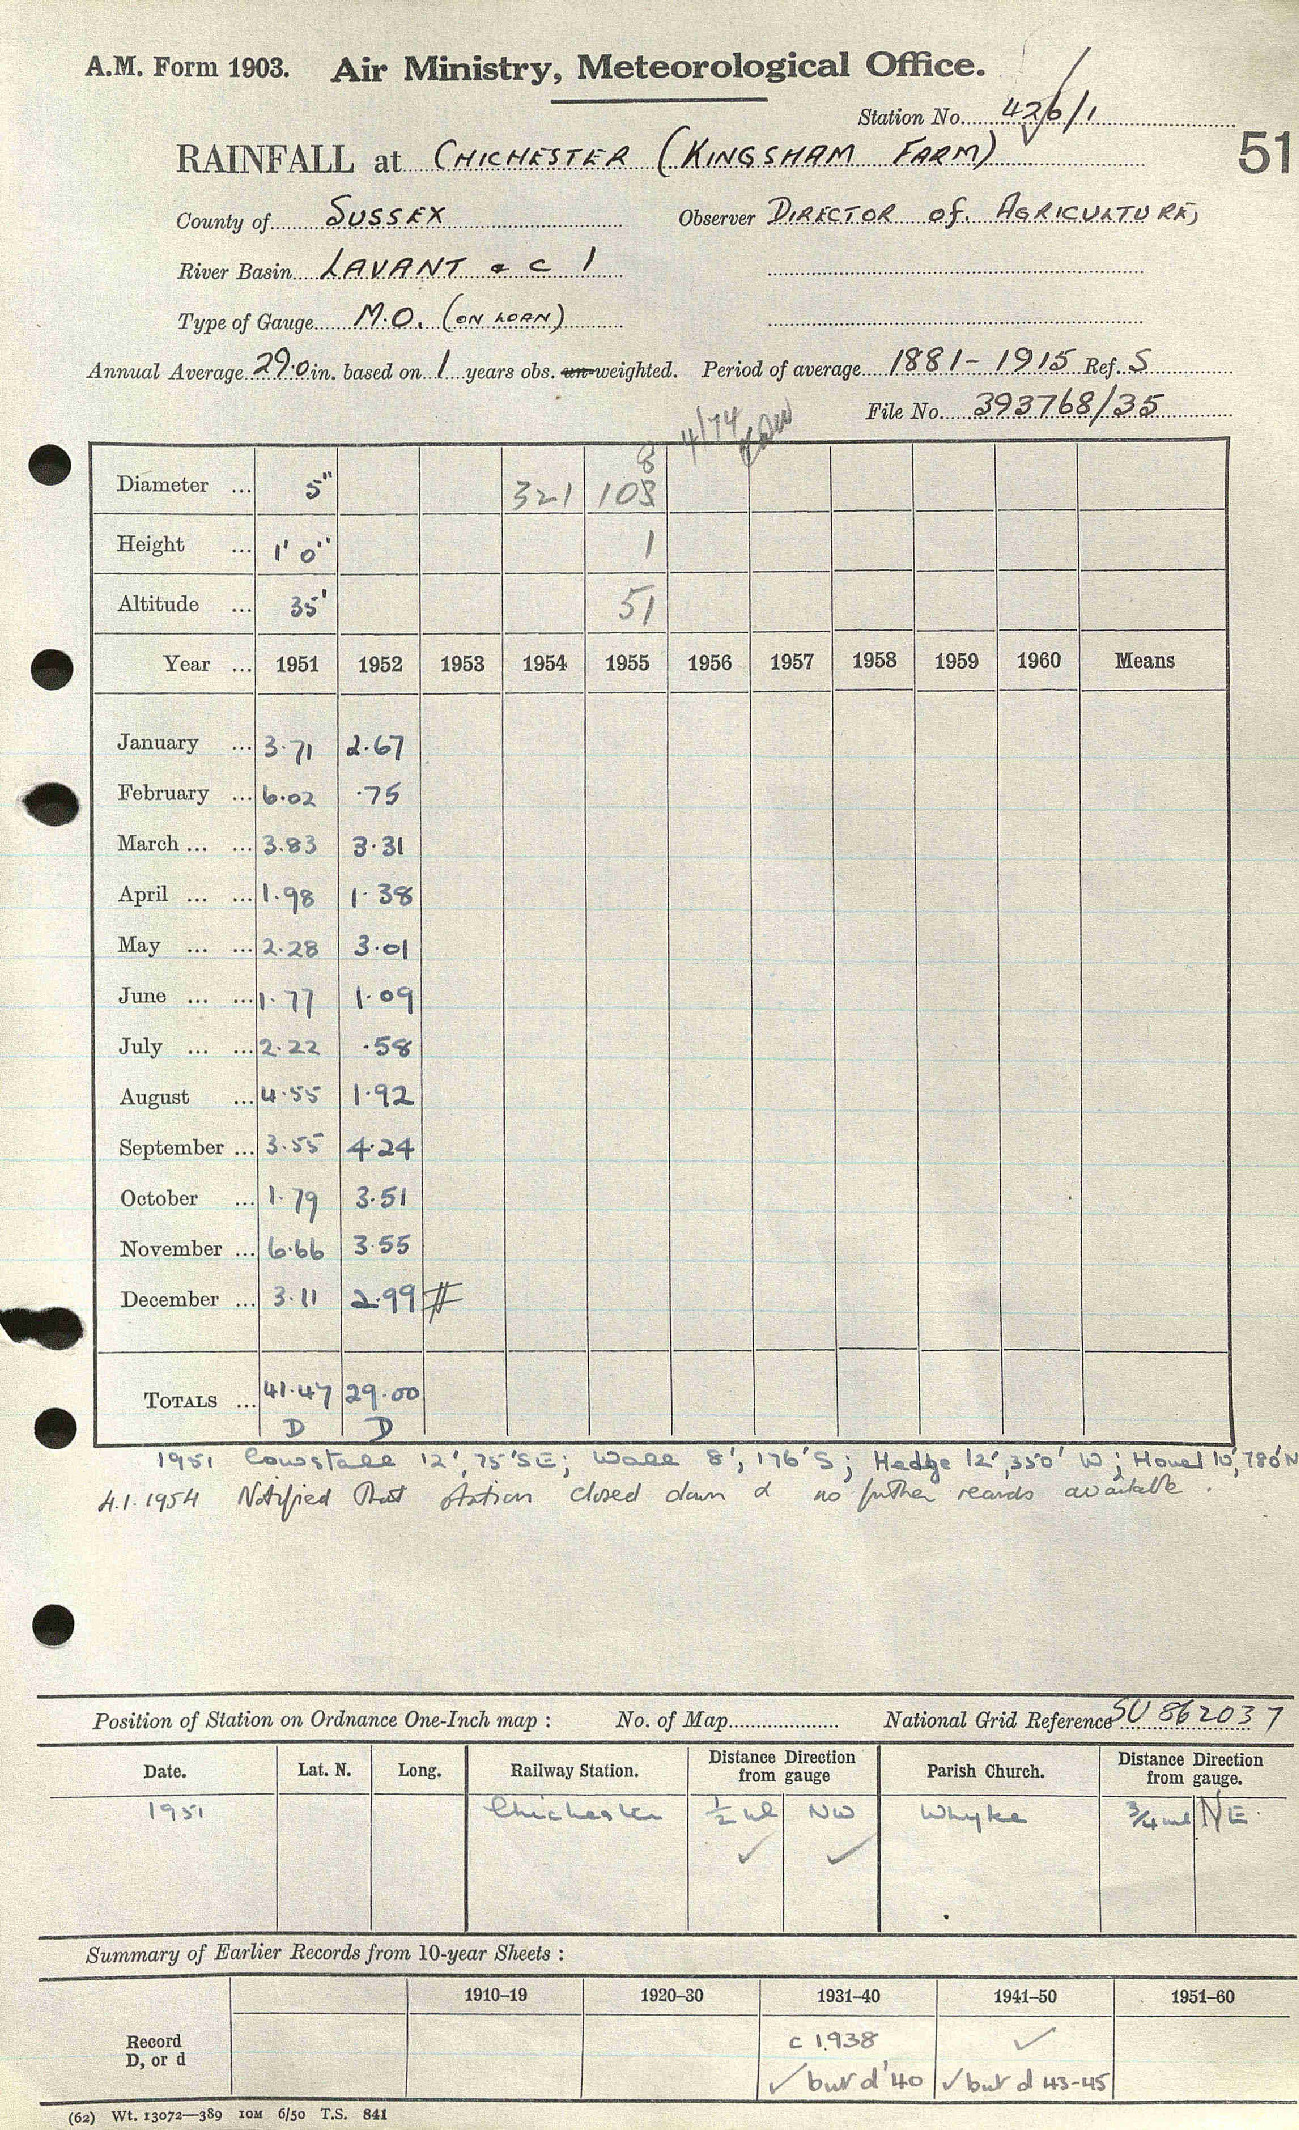 A.M. Form 1903. Air Ministry, Meteorological Office.
Station No. 426/1
51
RAINFALL at CHICHESTER (KINGSHAM FARM)
County of SUSSEX Observer DIRECTOR of AGRICULTURE,
River Basin LAVANT & C 1
Type of Gauge M.O. (ON LOAN)
Annual Average 29.0 in. based on 1 years obs. un-weighted. Period of average 1881-1915 Ref. S
File No. 393768/35
4/74
8
Diameter ... 5" 321 108
Height ... 1' 0" 1
Altitude ... 35' 51
Year ... 1951 1952 1953 1954 1955 1956 1957 1958 1959 1960 Means
January ... 3.71 2.67
February ... 6.02 .75
March ... ... 3.83 3.31
April ... ... 1.98 1.38
May ... ... 2.28 3.01
June ... ... 1.77 1.09
July ... ... 2.22 .58
August ... 4.55 1.92
September ... 3.55 4.24
October ... 1.79 3.51
November ... 6.66 3.55
December ... 3.11 2.99 #
TOTALS ... 41.47 29.00
D D
1951 Cowstall 12', 75' SE; Wall 8', 176' S; Hedge 12', 350' W; Hovel 10', 780' N
4.1.1954 Notified that station closed down & no further records available.
Position of Station on Ordnance One-Inch map : No. of Map National Grid Reference SU 862037
Date. Lat. N. Long. Railway Station. Distance Direction from gauge Parish Church. Distance Direction from gauge.
1951 Chichester ½ ml NW Whyke ¾ ml NE
✓ ✓
Summary of Earlier Records from 10-year Sheets :
1910–19 1920–30 1931–40 1941–50 1951–60
Record D, or d
c 1938 ✓
✓ but d '40 ✓ but d 43-45
(62) Wt. 13072—389 10M 6/50 T.S. 841